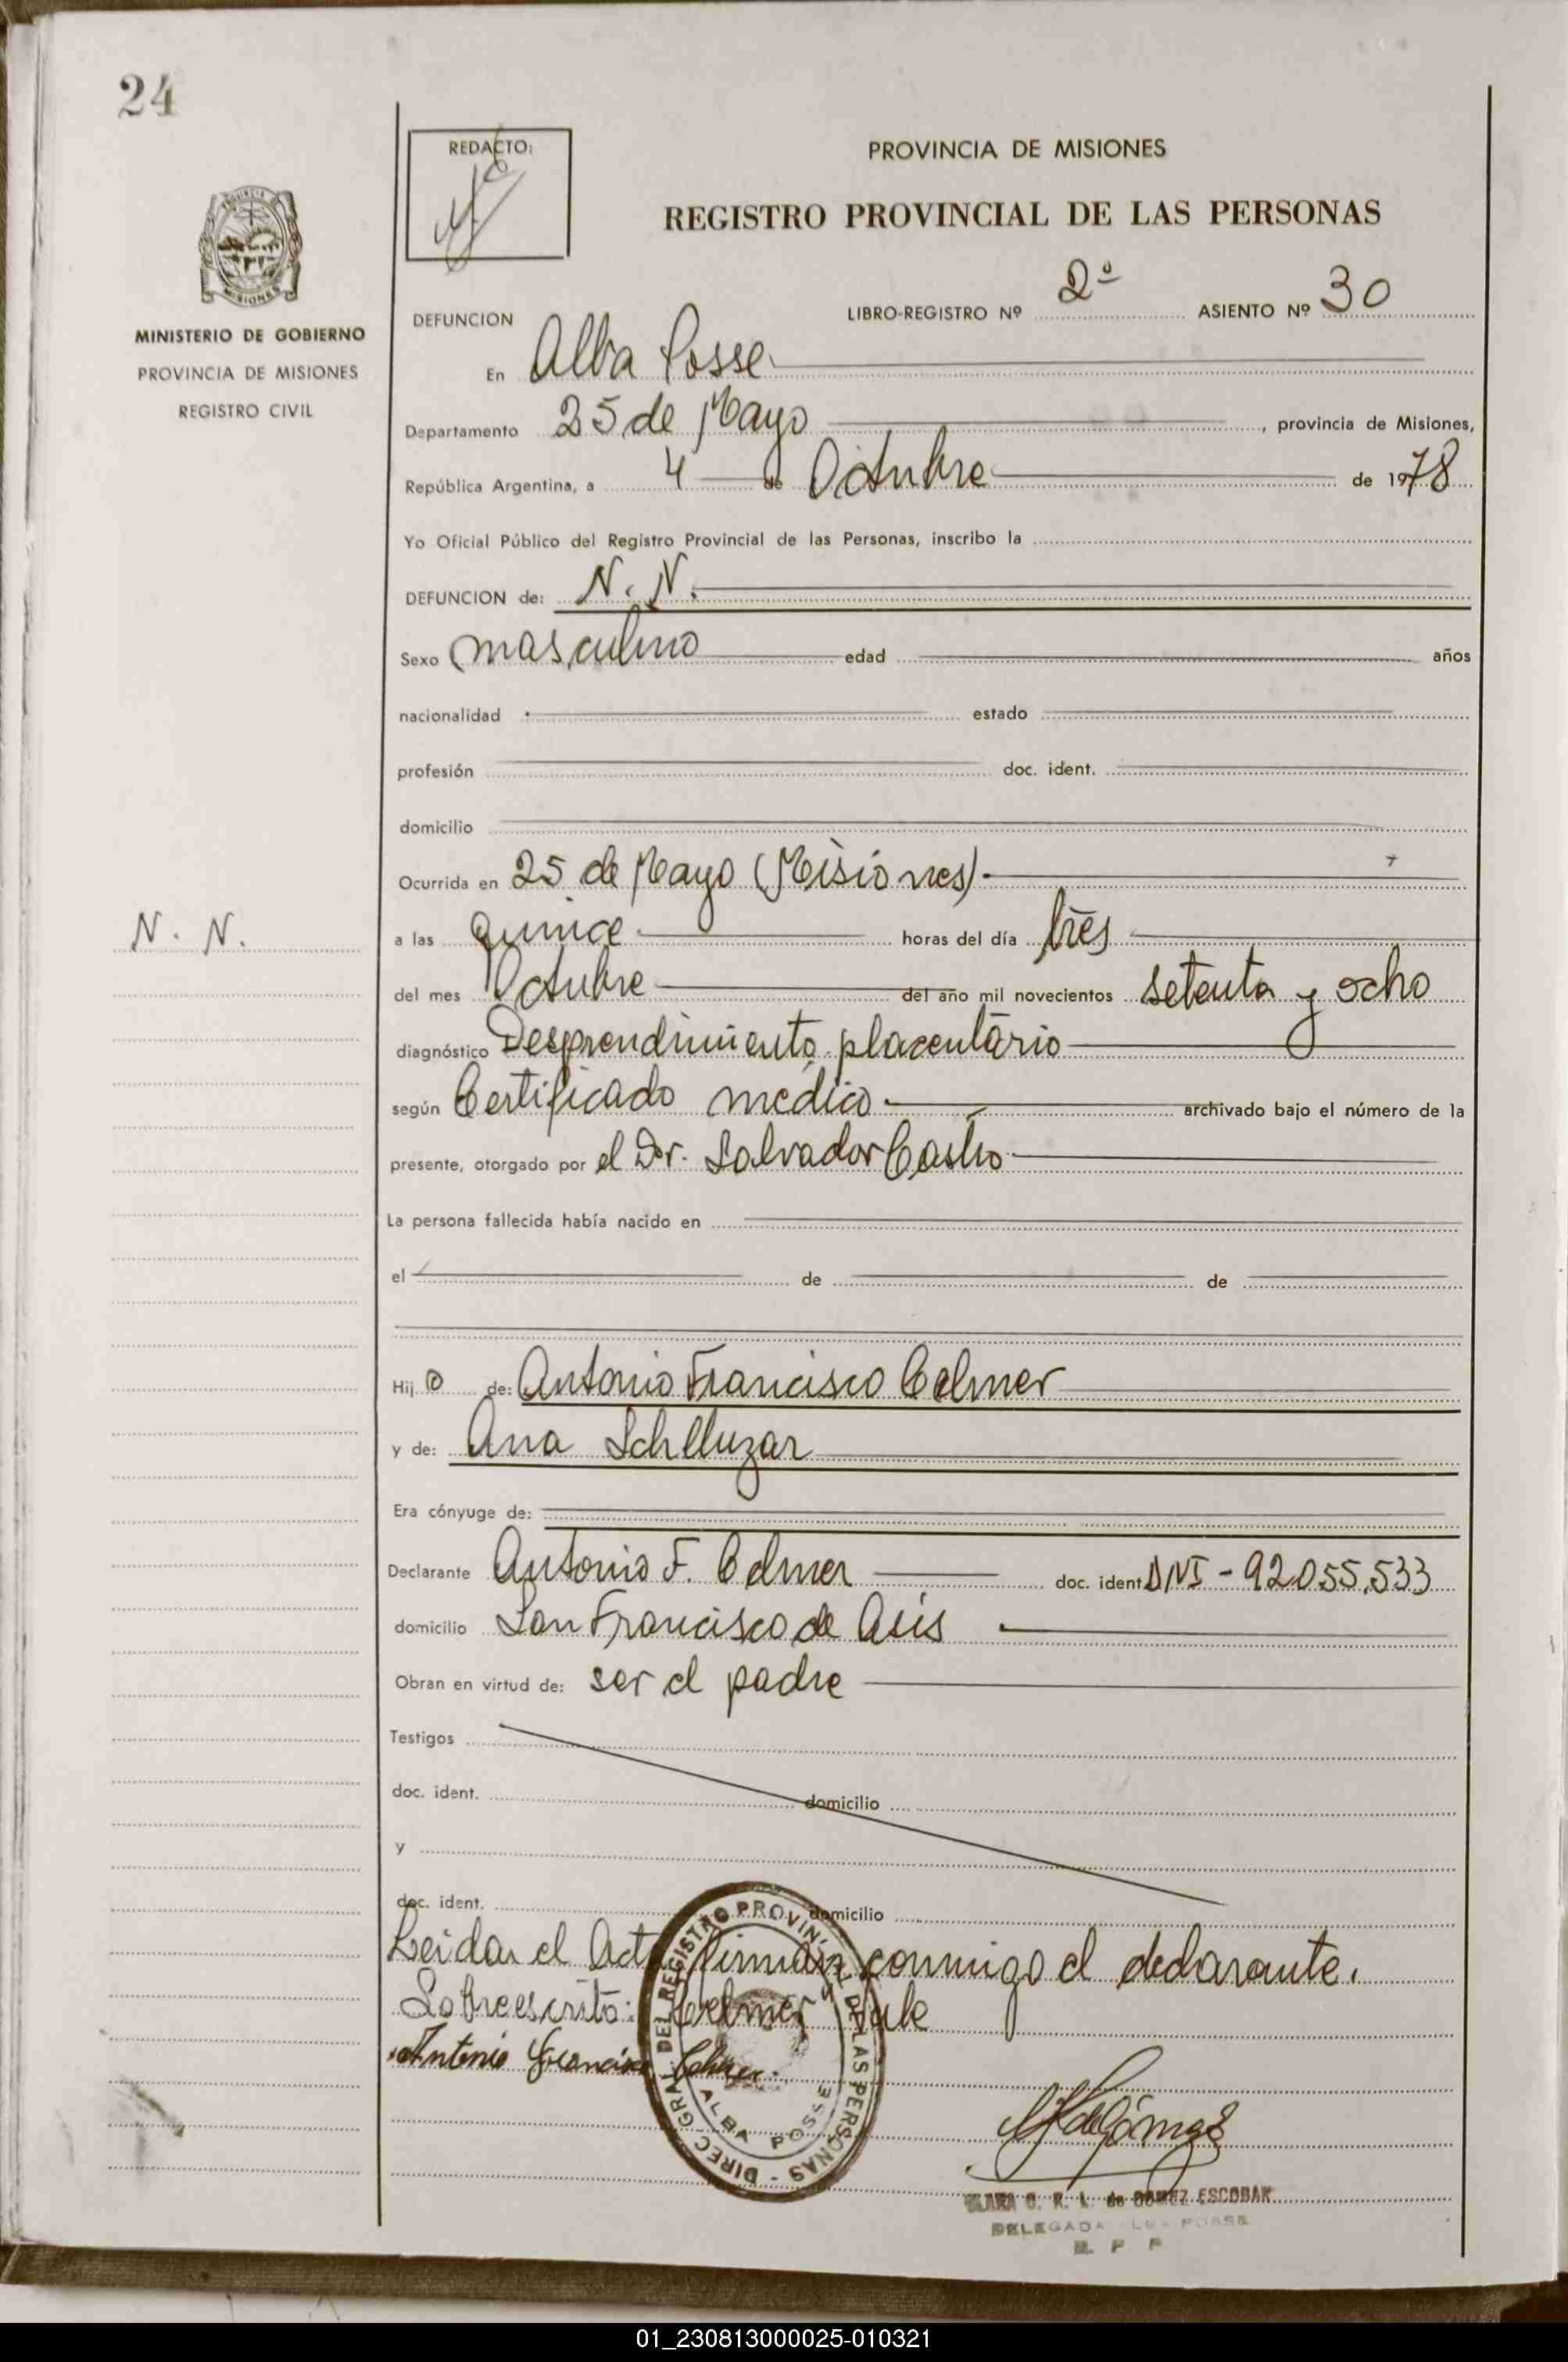 24
REDACTO:
PROVINCIA DE MISIONES
REGISTRO PROVINCIAL DE LAS PERSONAS
MISIONES
MINISTERIO DE GOBIERNO
PROVINCIA DE MISIONES
REGISTRO CIVIL
DEFUNCION LIBRO-REGISTRO Nº 2º ASIENTO Nº 30
En Alba Posse
Departamento 25 de Mayo, provincia de Misiones,
República Argentina, a 4 de Octubre de 1978
Yo Oficial Público del Registro Provincial de las Personas, inscribo la
DEFUNCION de: N. N.
Sexo masculino edad años
nacionalidad estado
profesión doc. ident.
domicilio
Ocurrida en 25 de Mayo (Misiones).
N. N.
a las quince horas del día tres
del mes Octubre del año mil novecientos setenta y ocho
diagnóstico Desprendimiento placentario
según Certificado médico. archivado bajo el número de la
presente, otorgado por el Dr. Salvador Castro
La persona fallecida había nacido en
el de de
Hijo de: Antonio Francisco Celmer
y de: Ana
Era cónyuge de:
Declarante Antonio F. Celmer doc. ident DNI - 92.055.533
domicilio San Francisco de Asis
Obran en virtud de: ser el padre
Testigos
doc. ident. domicilio
y
doc. ident. domicilio
Leida el Acta firman conmigo el declarante.
Sobreescrito: "Celmer" Vale
Antonio Francisco Celmer.
DIREC. GRAL. DEL REGISTRO PROVINCIAL DE LAS PERSONAS -
ALBA POSSE
CLARA C. R. L. de GOMEZ ESCOBAR
DELEGADA POSSE
R. P. P
01_230813000025-010321